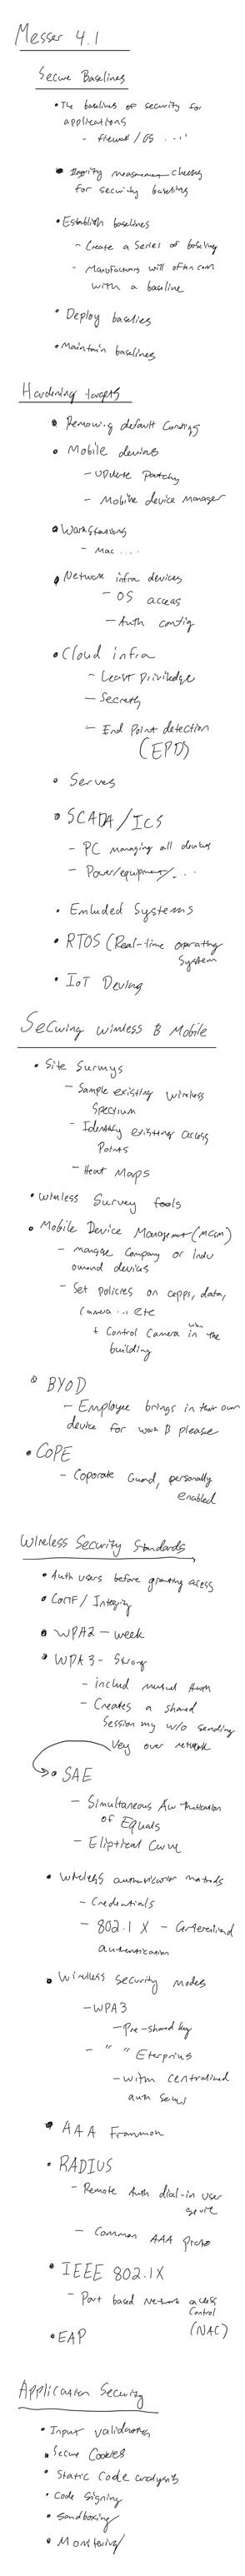 Messer 4.1
Secure Baselines
• The baselines of security for
applications
- firewall / OS .....
• Integrity measurement checks
for security baseline
• Establish baselines
- Create a series of baseline
- Manufactures will often com
with a baseline
• Deploy baselies
• Maintain baselines
Hardening targets
• Removing default configs
• Mobile devices
- Update Patching
- Mobile device Manager
• Workstations
- Mac ....
• Network infra devices
- OS access
- Auth config
• Cloud infra
- Least Priviledge
- Secrets
- End Point detection
(EPD)
• Serves
• SCADA/ICS
- PC managing all devices
- Power/equipment/_...
• Embuded Systems
• RTOS (Real-time operating
System
• IoT Devices
Securing wireless & Mobile
• Site Surveys
- Sample existing wireless
Spectrum
- Identify existing access
Points
- Heat Maps
• wireless Survey tools
• Mobile Device Management (MDM)
- manage Company or indu
owned devices
- Set policies on apps, data,
Camera ... etc
+ Control Camera in the
building
• BYOD
- Employee brings in their own
device for work & please
• COPE
- Coporate Owned, personally
enabled
Wireless Security Standards
• Auth users before granting access
• Conf / Integrity
• WPA2 - week
• WPA3 - Strong
- includ mutual Auth
- Creates a shared
Session key w/o sending
key over network
• SAE
- Simultaneous Authentication
of Equals
- Eliptical Curve
• Wireless authentication methods
- Credentials
- 802.1 X - Centeralized
authentication
• Wireless Security modes
- WPA3
- Pre-shared key
- " " Eterprius
- with centralized
auth server
• AAA Framework
• RADIUS
- Remote Auth dial-in user
service
- Common AAA
• IEEE 802.1X
- Port based Network access
Control
(NAC)
• EAP
Application Security
• Input validation
• Secure Cookies
• Static Code analysis
• Code signing
• Sandboxing
• Monitering